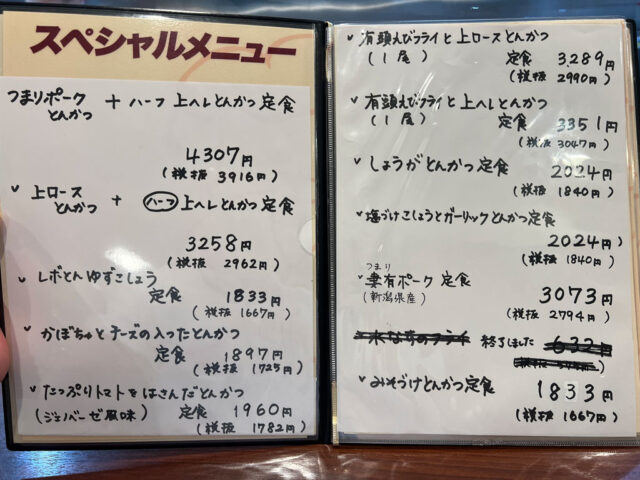 スペシャルメニュー
つまりポーク + ハーフ 上ヘレとんかつ 定食
とんかつ
4307円
(税抜 3916円)
上ロース + ハーフ 上ヘレとんかつ 定食
とんかつ
3258円
(税抜 2962円)
レボとん ゆずこしょう
定食 1833円
(税抜 1667円)
かぼちゃとチーズの入ったとんかつ
定食 1897円
(税抜 1725円)
たっぷりトマトをはさんだとんかつ
(ジェノベーゼ風味) 定食 1960円
(税抜 1782円)
有頭えびフライと上ロースとんかつ
(1尾) 定食 3,289円
(税抜 2990円)
有頭えびフライと上ヘレとんかつ
(1尾) 定食 3351円
(税抜 3047円)
しょうがとんかつ定食 2024円
(税抜 1840円)
塩づけこしょうとガーリックとんかつ定食
2024円
(税抜 1840円)
つまり
妻有ポーク 定食
(新潟県産) 3073円
(税抜 2794円)
終了しました 632円
みそづけとんかつ定食 1833円
(税抜 1667円)